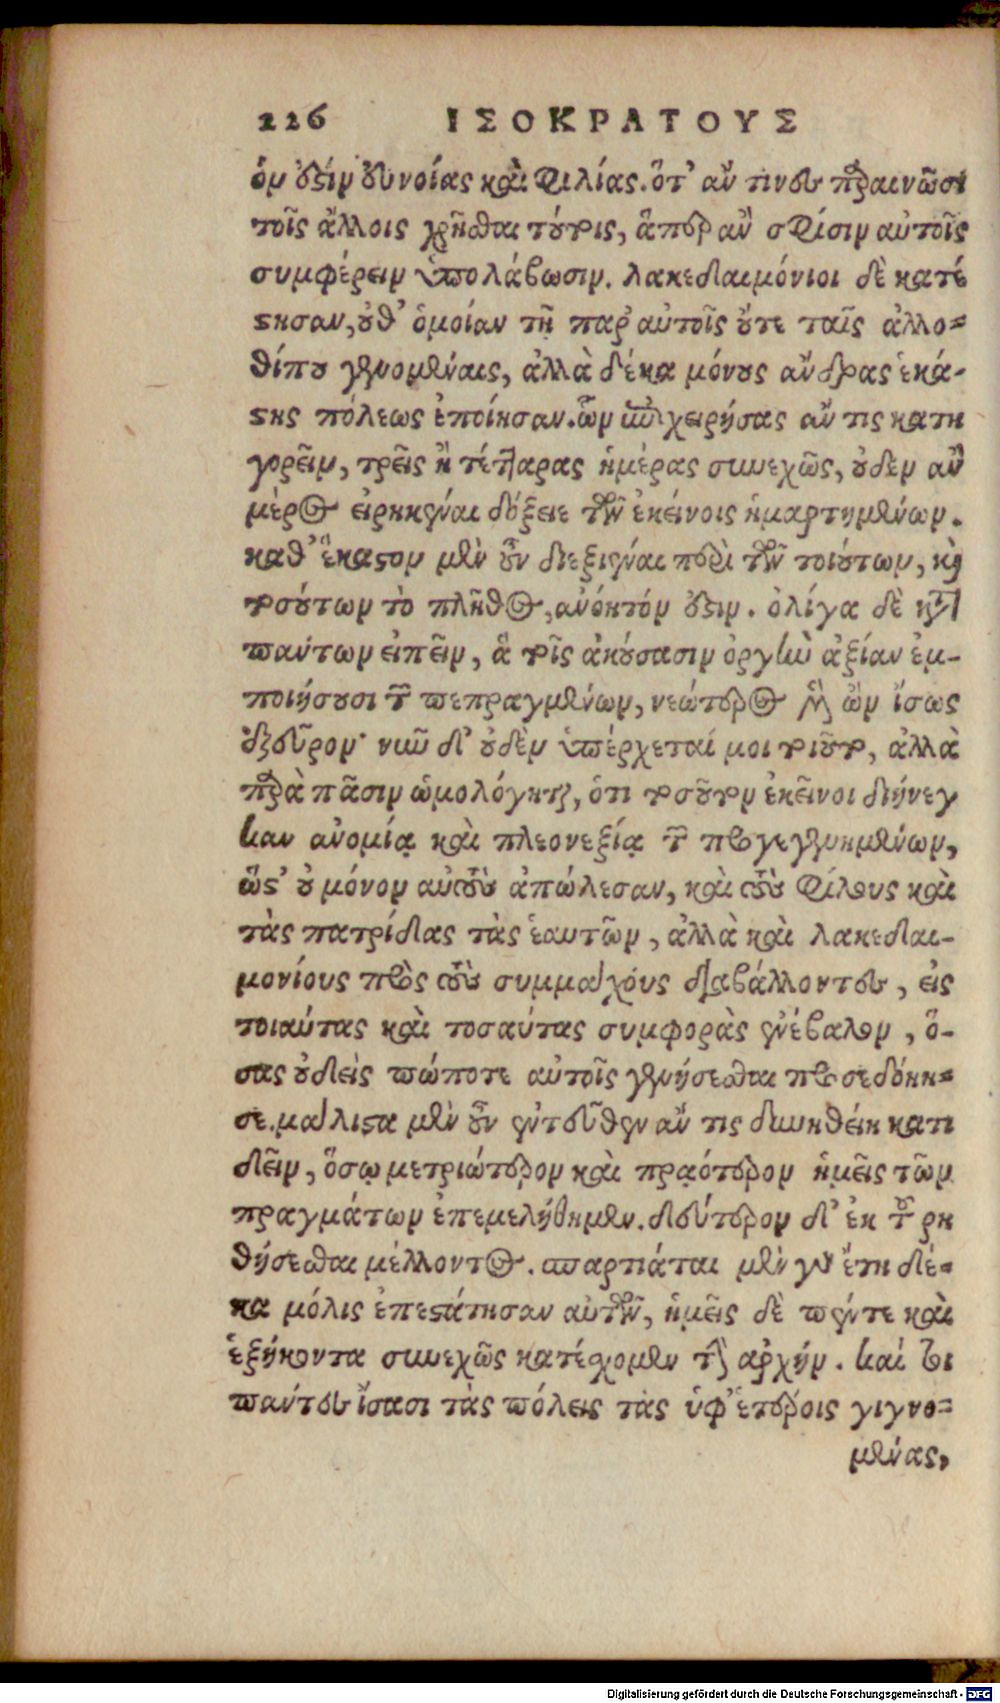 226 ΙΣΟΚΡΑΤΟΥΣ
όν ἐστιν εὐνοίας καὶ φιλίας. ὅτ' ἄν τινες παραινῶσι
τοῖς ἄλλοις χρῆσθαι τούτοις, ἅπερ ἂν σφίσιν αὐτοῖς
συμφέρειν ὑπολάβωσιν. λακεδαιμόνιοι δὲ κατέ
στησαν, οὔθ' ὁμοίαν τῇ παρ' αὐτοῖς οὔτε ταῖς ἄλλο-
θίπου γενομέναις, ἀλλὰ δέκα μόνους ἄνδρας ἑκά-
στης πόλεως ἐποίησαν. ὧν ἐπιχειρήσας ἄν τις κατη
γορεῖν, τρεῖς ἢ τέτταρας ἡμέρας συνεχῶς, οὐδὲν ἂν
μέρος εἰρηκέναι δόξειε τῶν ἐκείνοις ἡμαρτημένων.
καθ' ἕκαστον μὲν οὖν διεξιέναι περὶ τῶν τοιούτων, καὶ
τοσούτων τὸ πλῆθος, ἀνόητόν ἐστιν. ὀλίγα δὲ κατὰ
πάντων εἰπεῖν, ἃ τοῖς ἀκούσασιν ὀργὴν ἀξίαν ἐμ-
ποιήσουσι τῶν πεπραγμένων, νεώτερος μὲν ὢν ἴσως
ἐξεῦρον· νῦν δ' οὐδὲν ὑπέρχεταί μοι τοιοῦτο, ἀλλὰ
παρὰ πᾶσιν ὡμολόγηται, ὅτι τοσοῦτον ἐκεῖνοι διήνεγ
καν ἀνομίᾳ καὶ πλεονεξίᾳ τῶν προγεγενημένων,
ὥστ' οὐ μόνον αὑτοὺς ἀπώλεσαν, καὶ τοὺς φίλους καὶ
τὰς πατρίδας τὰς ἑαυτῶν, ἀλλὰ καὶ λακεδαι-
μονίους πρὸς τοὺς συμμάχους διαβάλλοντες, εἰς
τοιαύτας καὶ τοσαύτας συμφορὰς ἐνέβαλον, ὅ-
σας οὐδεὶς πώποτε αὐτοῖς γενήσεσθαι προσεδόκη-
σε. μάλιστα μὲν οὖν ἐντεῦθεν ἄν τις δυνηθείη κατι
δεῖν, ὅσῳ μετριώτερον καὶ πρᾳότερον ἡμεῖς τῶν
πραγμάτων ἐπεμελήθημεν. δεύτερον δ' ἐκ τοῦ ῥη
θήσεσθαι μέλλοντος. σπαρτιάται μὲν γὰρ ἔτη δέ-
κα μόλις ἐπεστάτησαν αὐτῶν, ἡμεῖς δὲ πέντε καὶ
ἑξήκοντα συνεχῶς κατέσχομεν τὴν ἀρχήν. καί τοι
πάντες ἴσασι τὰς πόλεις τὰς ὑφ' ἑτέροις γιγνο-
μένας,
Digitalisierung gefördert durch die Deutsche Forschungsgemeinschaft - DFG